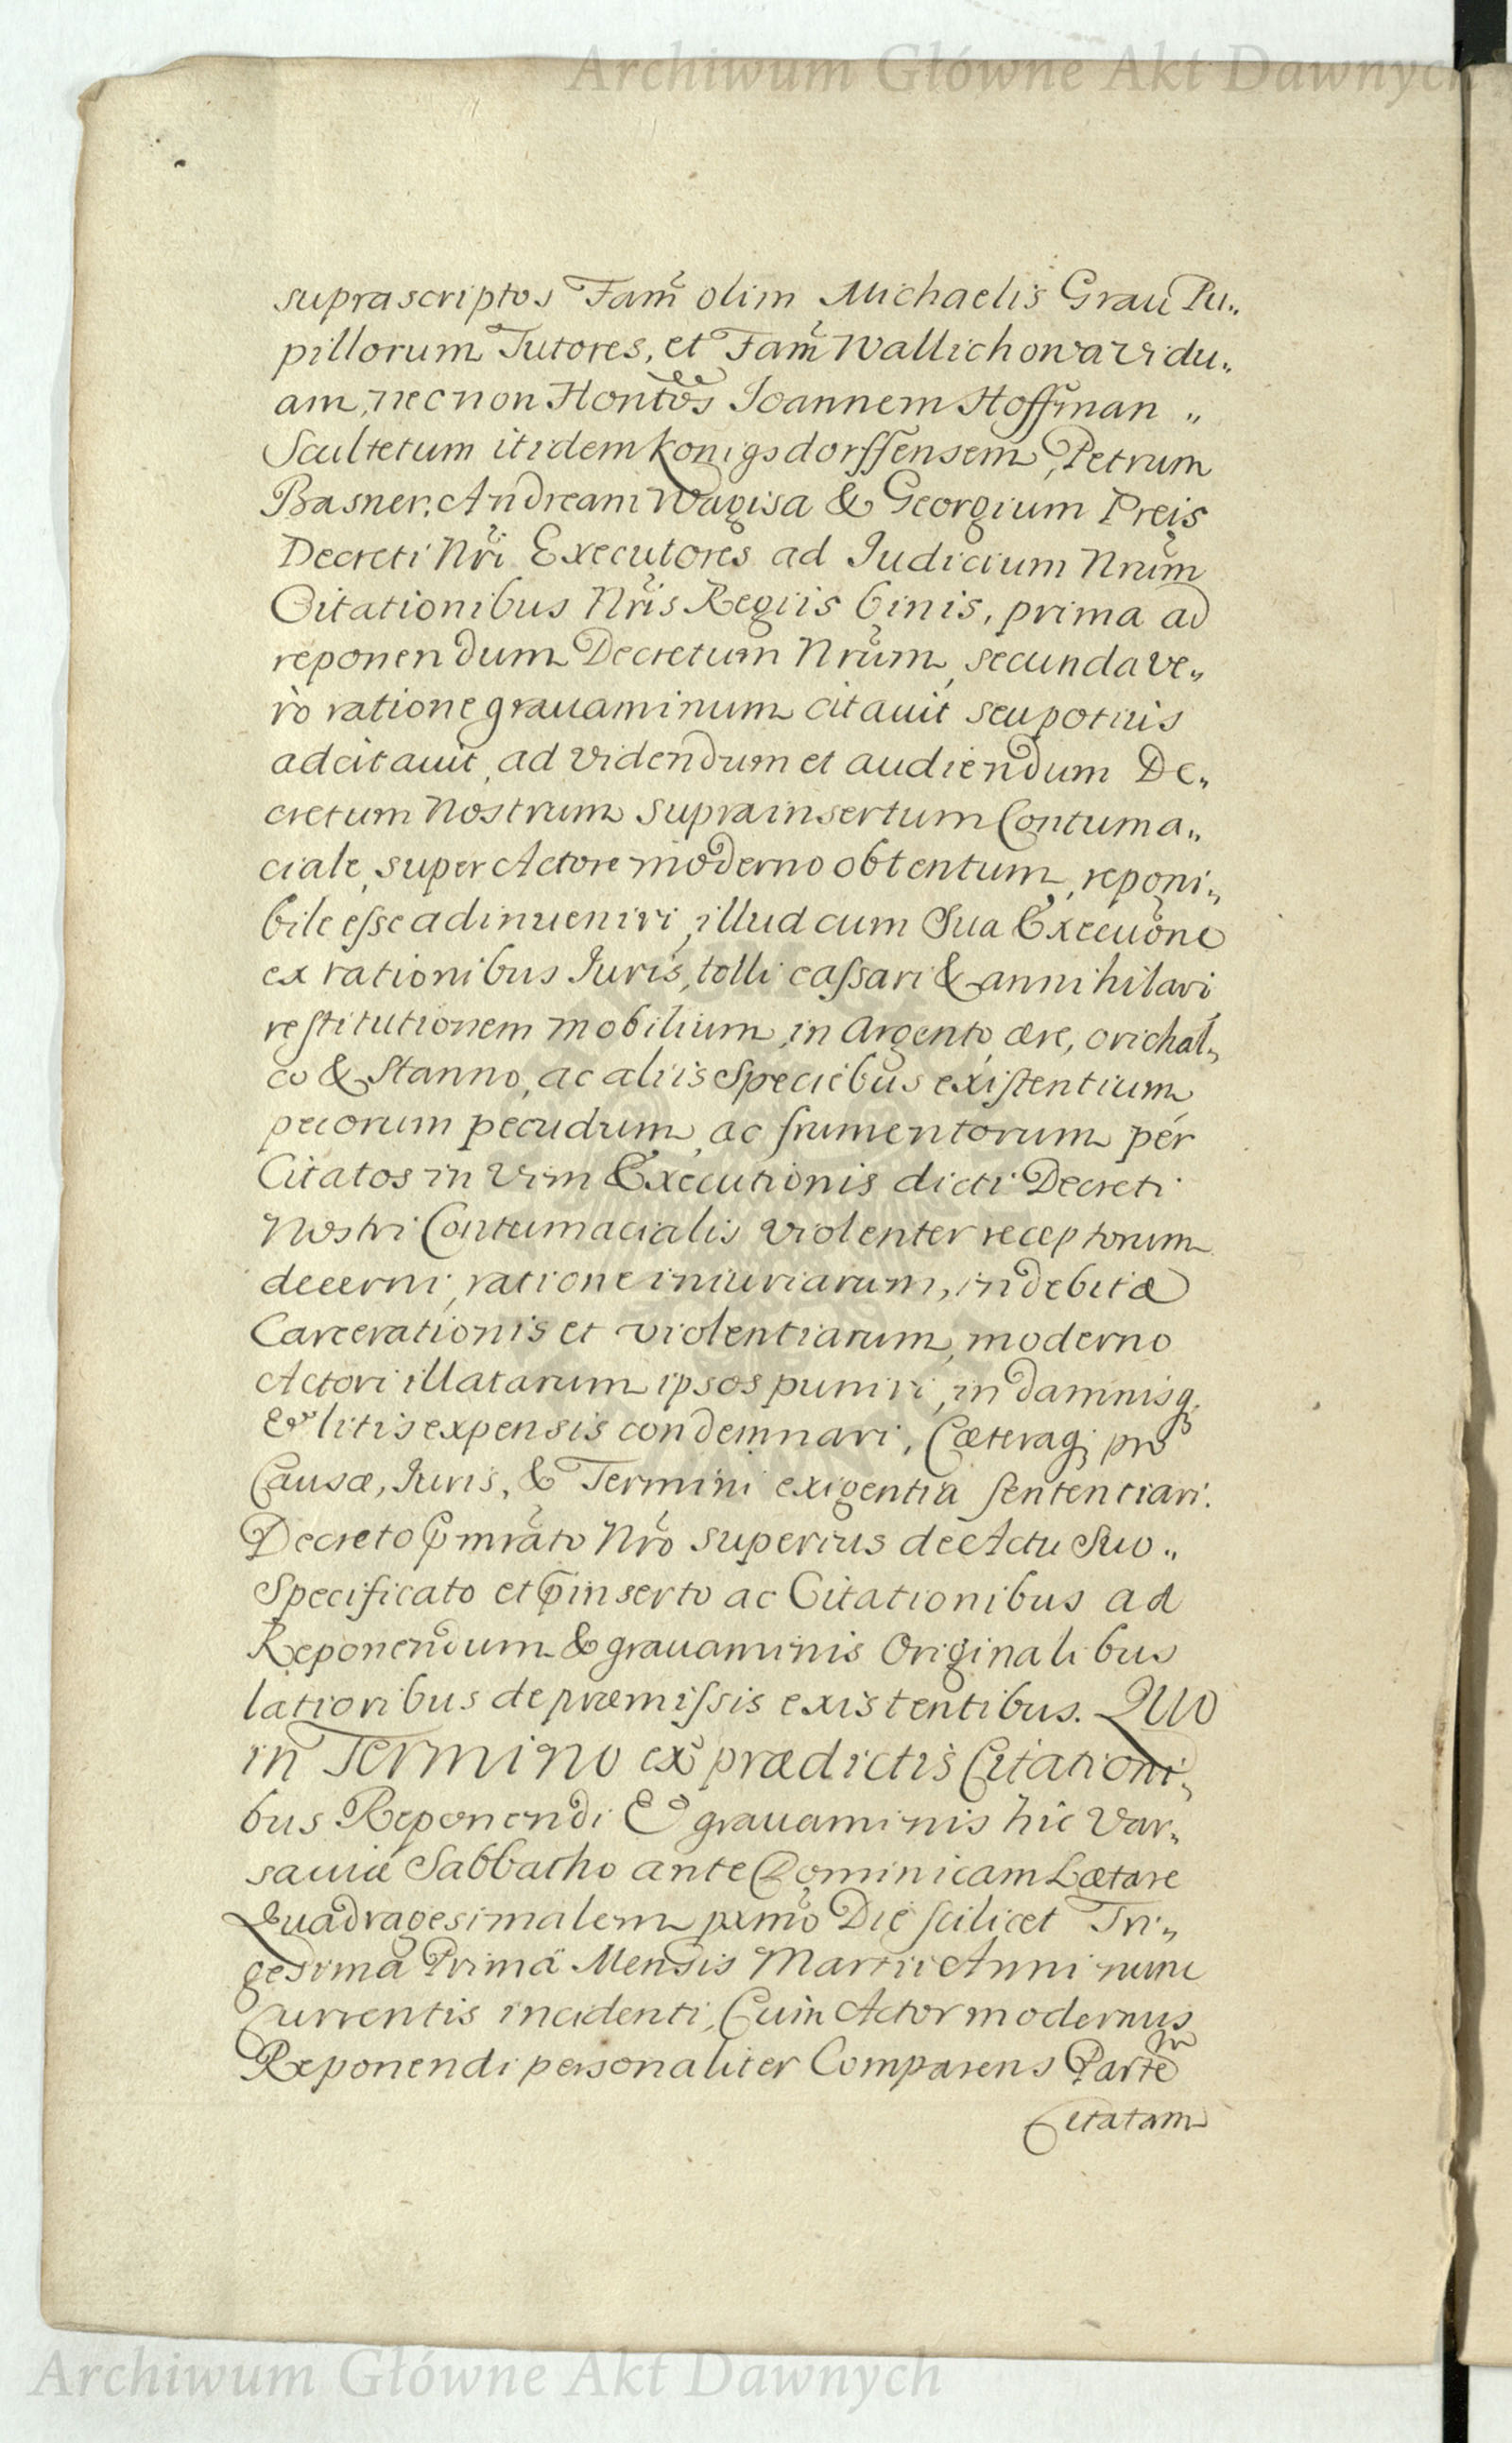 Archiwum Główne Akt Dawnych
suprascriptos Fam̃ olim Michaelis Grau Pu„
pillorum Tutores, et Fam̃ Wallichowa vidu„
am, necnon Hontos Ioannem Hoffman „
Scultetum itidem Konigsdorffensem, Petrum
Basner, Andream Wagisa & Georgium Preis
Decreti Nri Executores ad Iudicium Nrum
Citationibus Nris Regiis binis, prima ad
reponendum Decretum Nrum, secunda ve„
rò ratione grauaminum citauit seu potius
adcitauit, ad videndum et audiendum De„
cretum Nostrum suprainsertum Contuma„
ciale, super Actore moderno obtentum, reponi„
bile esse adinueniri, illud cum Sua Execuõne
ex rationibus Iuris, tolli cassari & annihilari
restitutionem mobilium, in Argento, ære, orichal„
co & Stanno, ac aliis Speciebus existentium
pecorum pecudum, ac frumentorum per
Citatos in vim Executionis dicti Decreti
Nostri Contumacialis violenter receptorum
decerni, ratione iniuriarum, indebitæ
Carcerationis et violentiarum, moderno
Actori illatarum ipsos puniri, in damnisq;
& litis expensis condemnari, Cæteraq; pro
Causæ, Iuris, & Termini exigentia sententiari.
Decreto p̃mrato Nro superius de Actu Suo„
Specificato et p̃inserto ac Citationibus ad
Reponendum & grauaminis Originalibus
latioribus de præmissis existentibus. Quo
in Termino ex prædictis Citationi„
bus Reponendi & grauaminis hic Var„
sauiæ Sabbatho ante Dominicam Lætare
Quadragesimalem pxmo Die scilicet Tri„
gesima Prima Mensis Martii Anni nunc
Currentis incidenti, Cum Actor modernus
Reponendi personaliter Comparens Partem
Citatam
Archiwum Główne Akt Dawnych